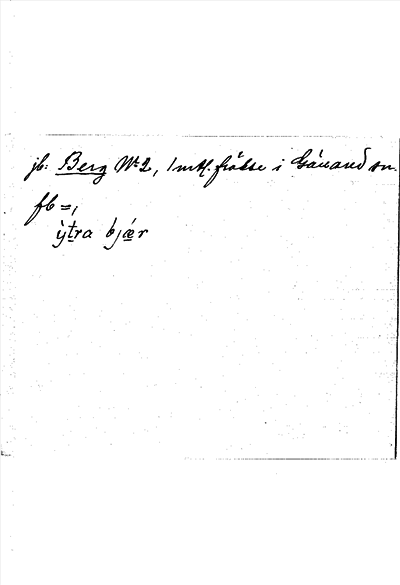 jb: Berg Nº 2, 1 mtl. frälse i Gåsand sn.
fb =,
ýtra bjær